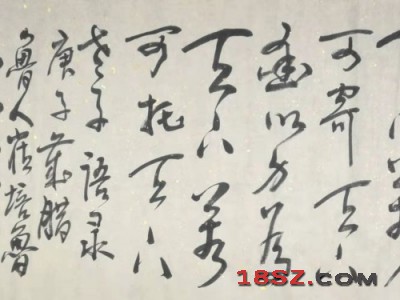 可寄天下
愛以身为
天下若
可托天下
老子語录
庚子歲腊
魯人崔培魯
18SZ.COM